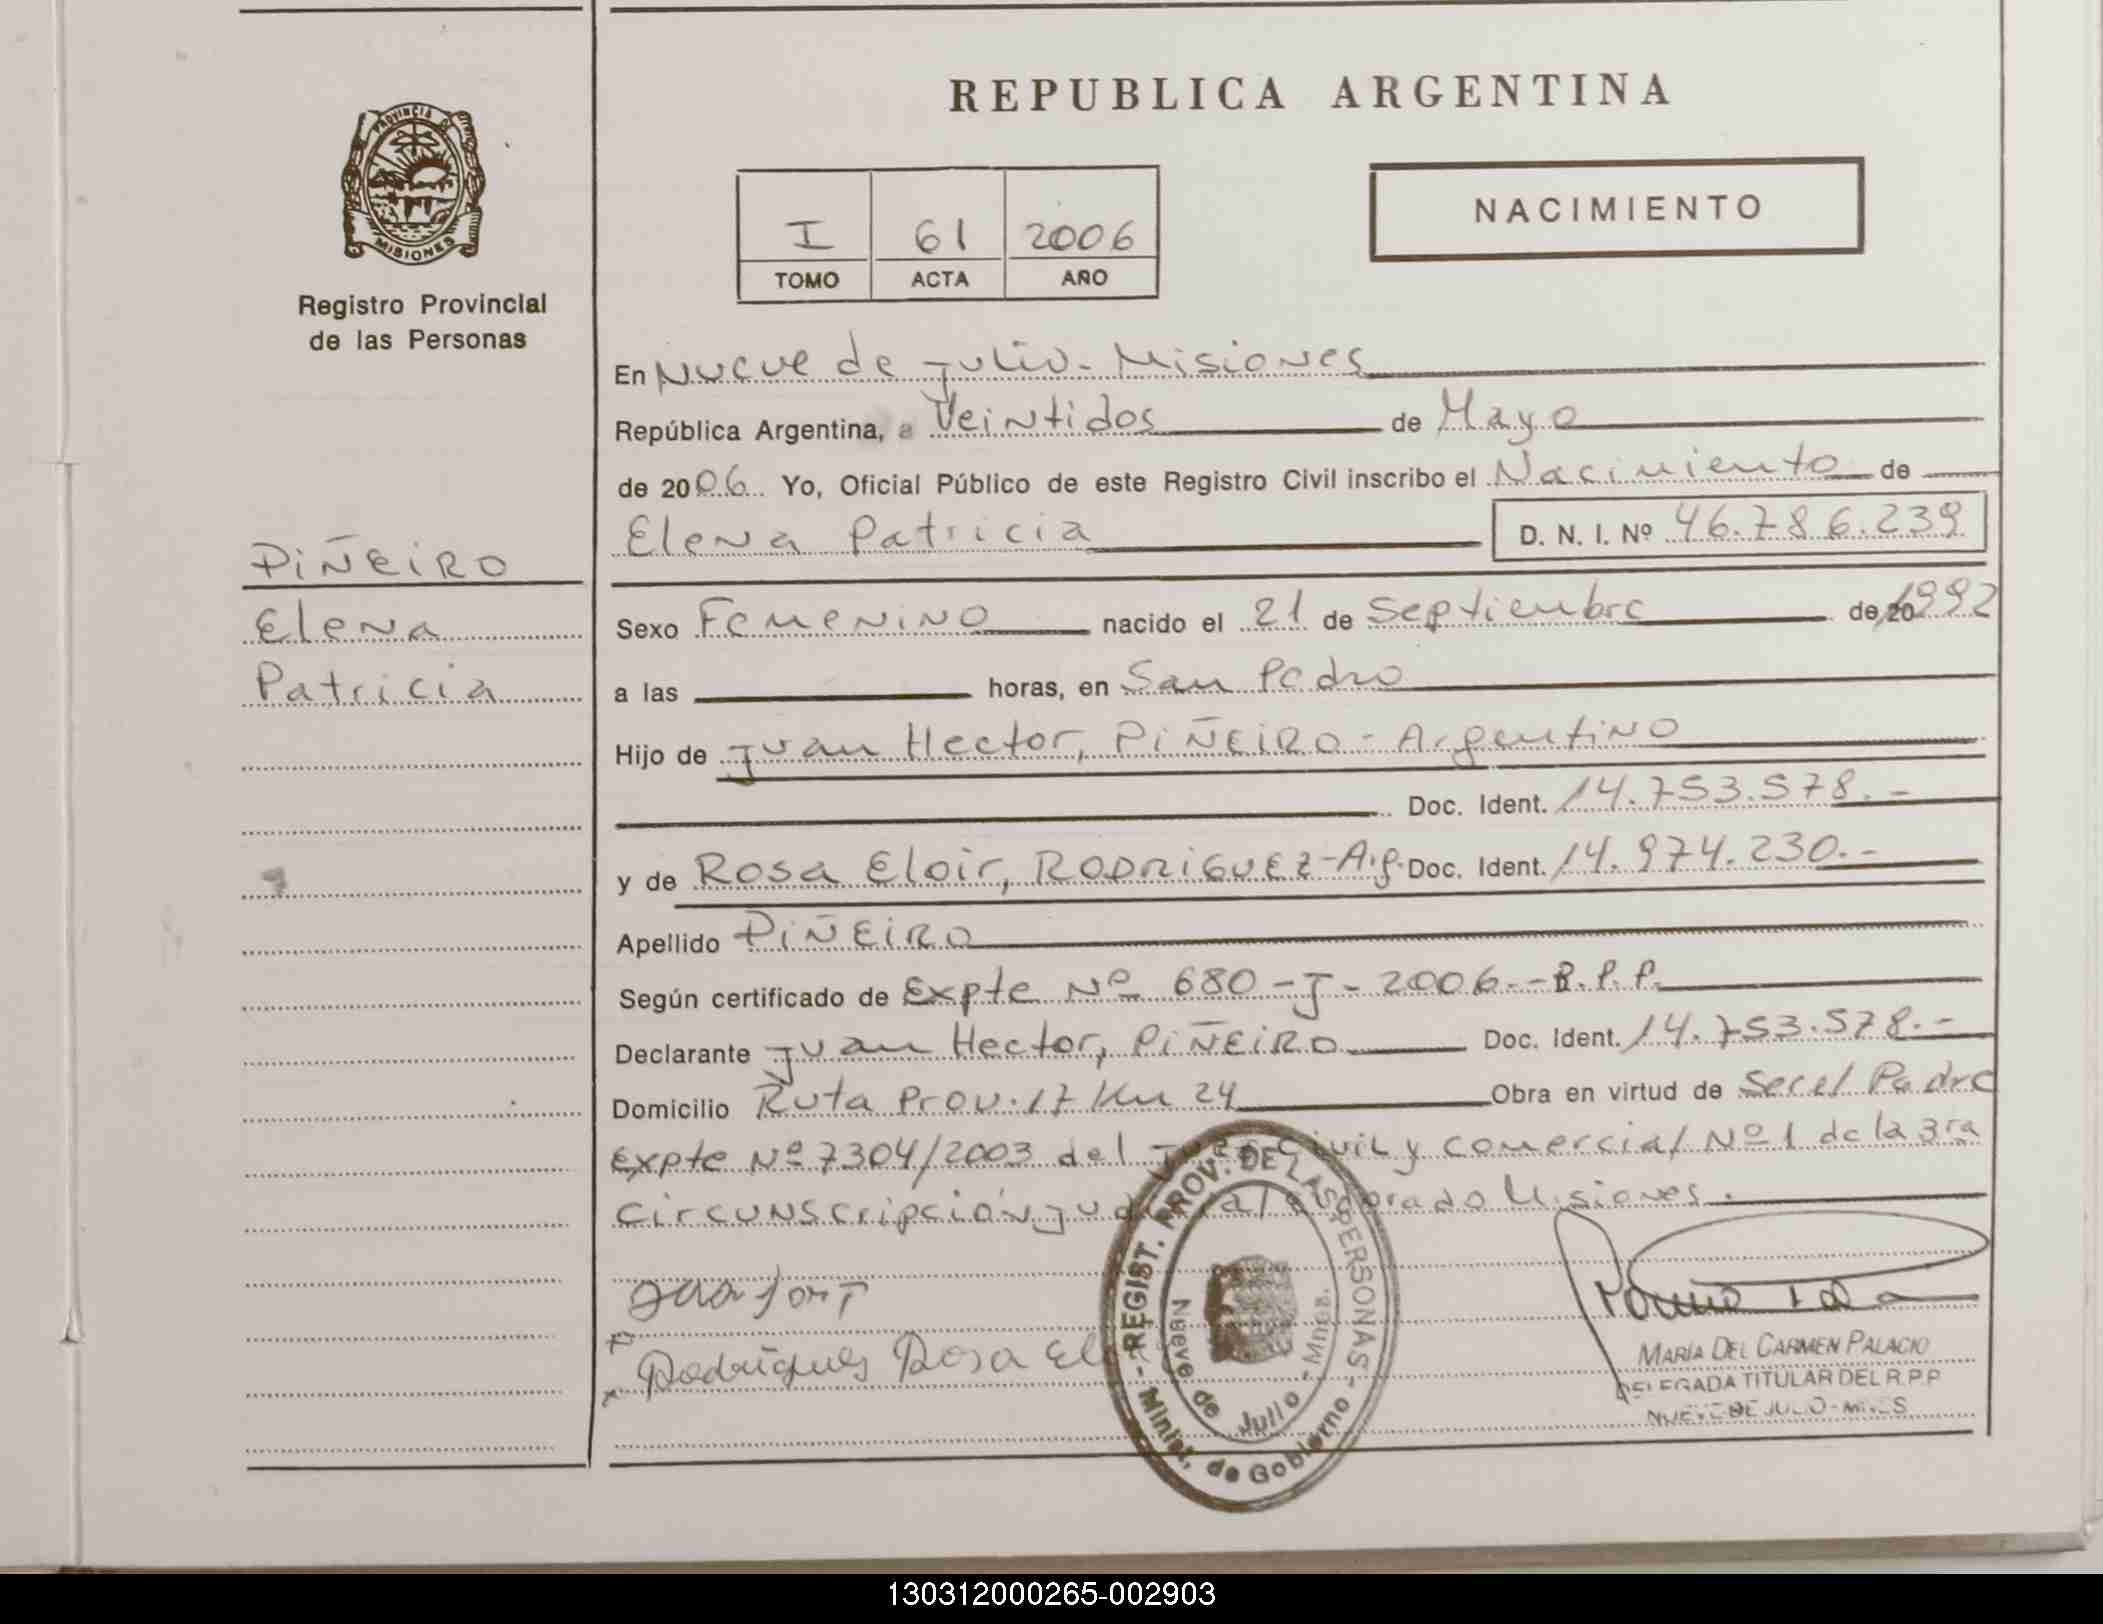 PROVINCIA DE
MISIONES
Registro Provincial
de las Personas
REPUBLICA ARGENTINA
I 61 2006
TOMO ACTA AÑO
NACIMIENTO
En Nueve de Julio - Misiones
República Argentina, a Veintidos de Mayo
de 2006 Yo, Oficial Público de este Registro Civil inscribo el Nacimiento de
Elena Patricia D. N. I. Nº 46.786.239
PIÑEIRO
Elena
Patricia
Sexo Femenino nacido el 21 de Septiembre de 20 1992
a las horas, en San Pedro
Hijo de Juan Hector, PIÑEIRO - Argentino
Doc. Ident. 14.753.578.-
y de Rosa Eloir, RODRIGUEZ - Arg. Doc. Ident. 14.974.230.-
Apellido PIÑEIRO
Según certificado de Expte Nº 680 - J - 2006.- R.P.P.
Declarante Juan Hector, PIÑEIRO Doc. Ident. 14.753.578.-
Domicilio Ruta Prov. 17 Km 24 Obra en virtud de Ser el Padre
Expte Nº 7304/2003 del Juzg Civil y comercial Nº 1 de la 3ra
circunscripción Judicial Eldorado Misiones.
Rodrigues Rosa El
REGIST. PROV. DE LAS PERSONAS
- Minist. de Gobierno -
Nueve de Julio - Mnes.
MARÍA DEL CARMEN PALACIO
DELEGADA TITULAR DEL R.P.P
NUEVE DE JULIO - MNES
130312000265-002903